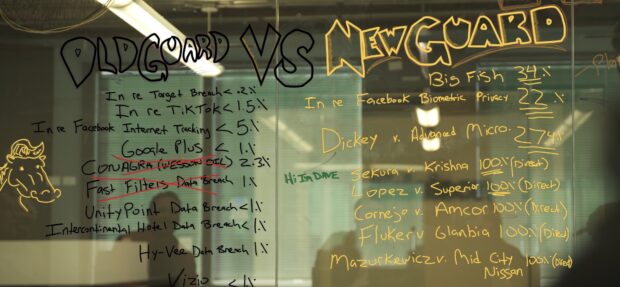 OLD GUARD VS NEW GUARD
In re Target Breach < .2%
In re TikTok < 1.5%
In re Facebook Internet Tracking < 5%
Google Plus < 1%
CONAGRA (WESSON OIL) 2.3%
Fast Filters Data Breach 1%
UnityPoint Data Breach <1%
Intercontinental Hotel Data Breach <1%
Hy-Vee Data Breach 1%
Vizio <1%
Hi Im DAVE
Big Fish 34%
In re Facebook Biometric Privacy 22%
Dickey v. Advanced Micro. 27%
Sekura v. Krishna 100% (Direct)
Lopez v. Superior 100% (Direct)
Cornejo v. Amcor 100% (Direct)
Fluker v Glanbia 100% (Direct)
Mazurkewicz v. Mid City Nissan 100% (Direct)